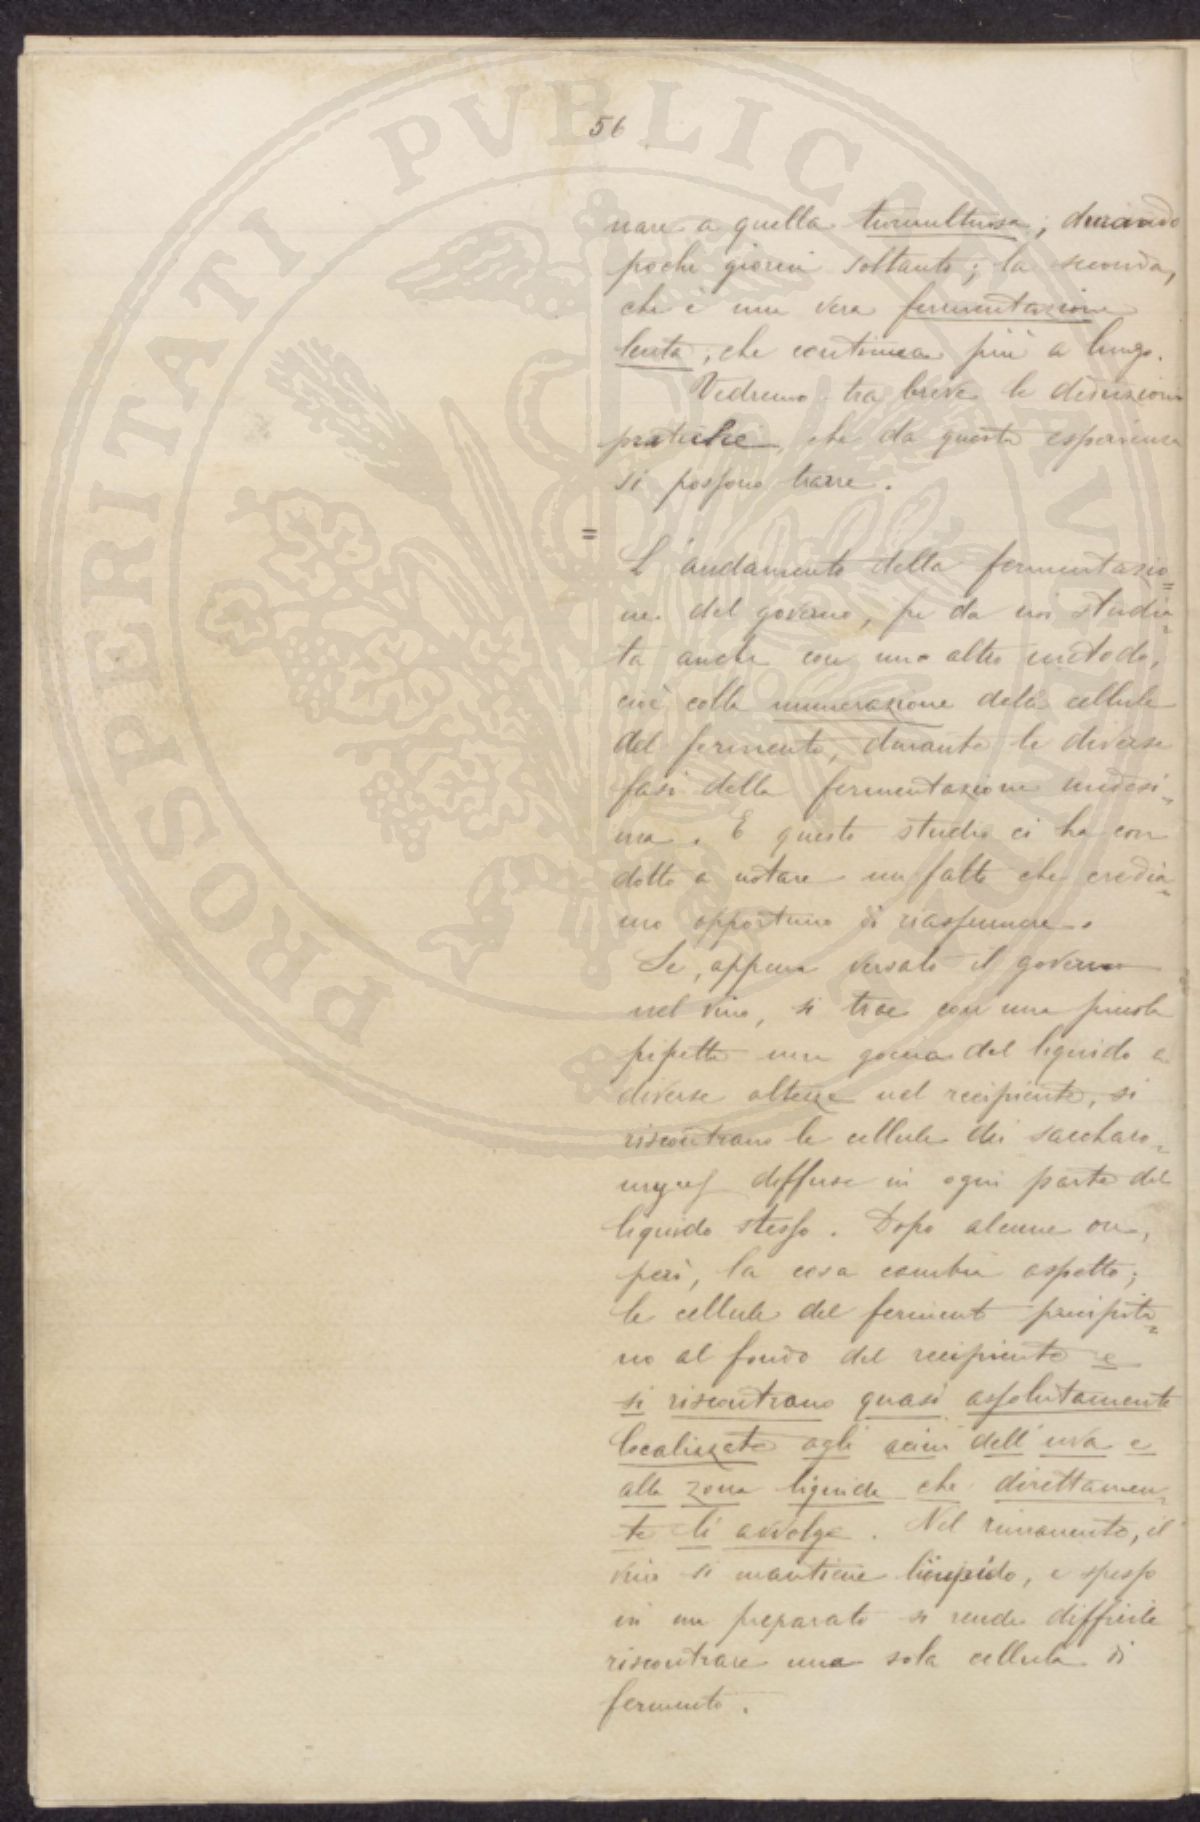 56
nare a quella tumultuosa; durando
pochi giorni soltanto; la seconda,
che è una vera fermentazione
lenta, che continua più a lungo.
Vedremo tra breve le deduzioni
pratiche, che da questa esperienza
si possono trarre.
=
L'andamento della fermentazio=
ne del governo, fu da noi studia=
ta anche con uno altro metodo,
cioè colla numerazione delle cellule
del fermento, durante le diverse
fasi della fermentazione medesi=
ma. E questo studio ci ha con
dotto a notare un fatto che credia=
mo opportuno di riassumere.
Se, appena versato il governo
nel vino, si trae con una piccola
pipetta una goccia del liquido a
diverse altezze nel recipiente, si
riscontrano le cellule dei saccharo=
myces diffuse in ogni parte del
liquido stesso. Dopo alcune ore,
però, la cosa cambia aspetto;
le cellule del fermento precipita=
no al fondo del recipiente e
si riscontrano quasi assolutamente
localizzate agli acini dell'uva e
alla zona liquida che direttamen=
te li avvolge. Nel rimanente, il
vino si mantiene limpido, e spesso
in un preparato si rende difficile
riscontrare una sola cellula di
fermento.
PROSPERITATI PVBLICAE